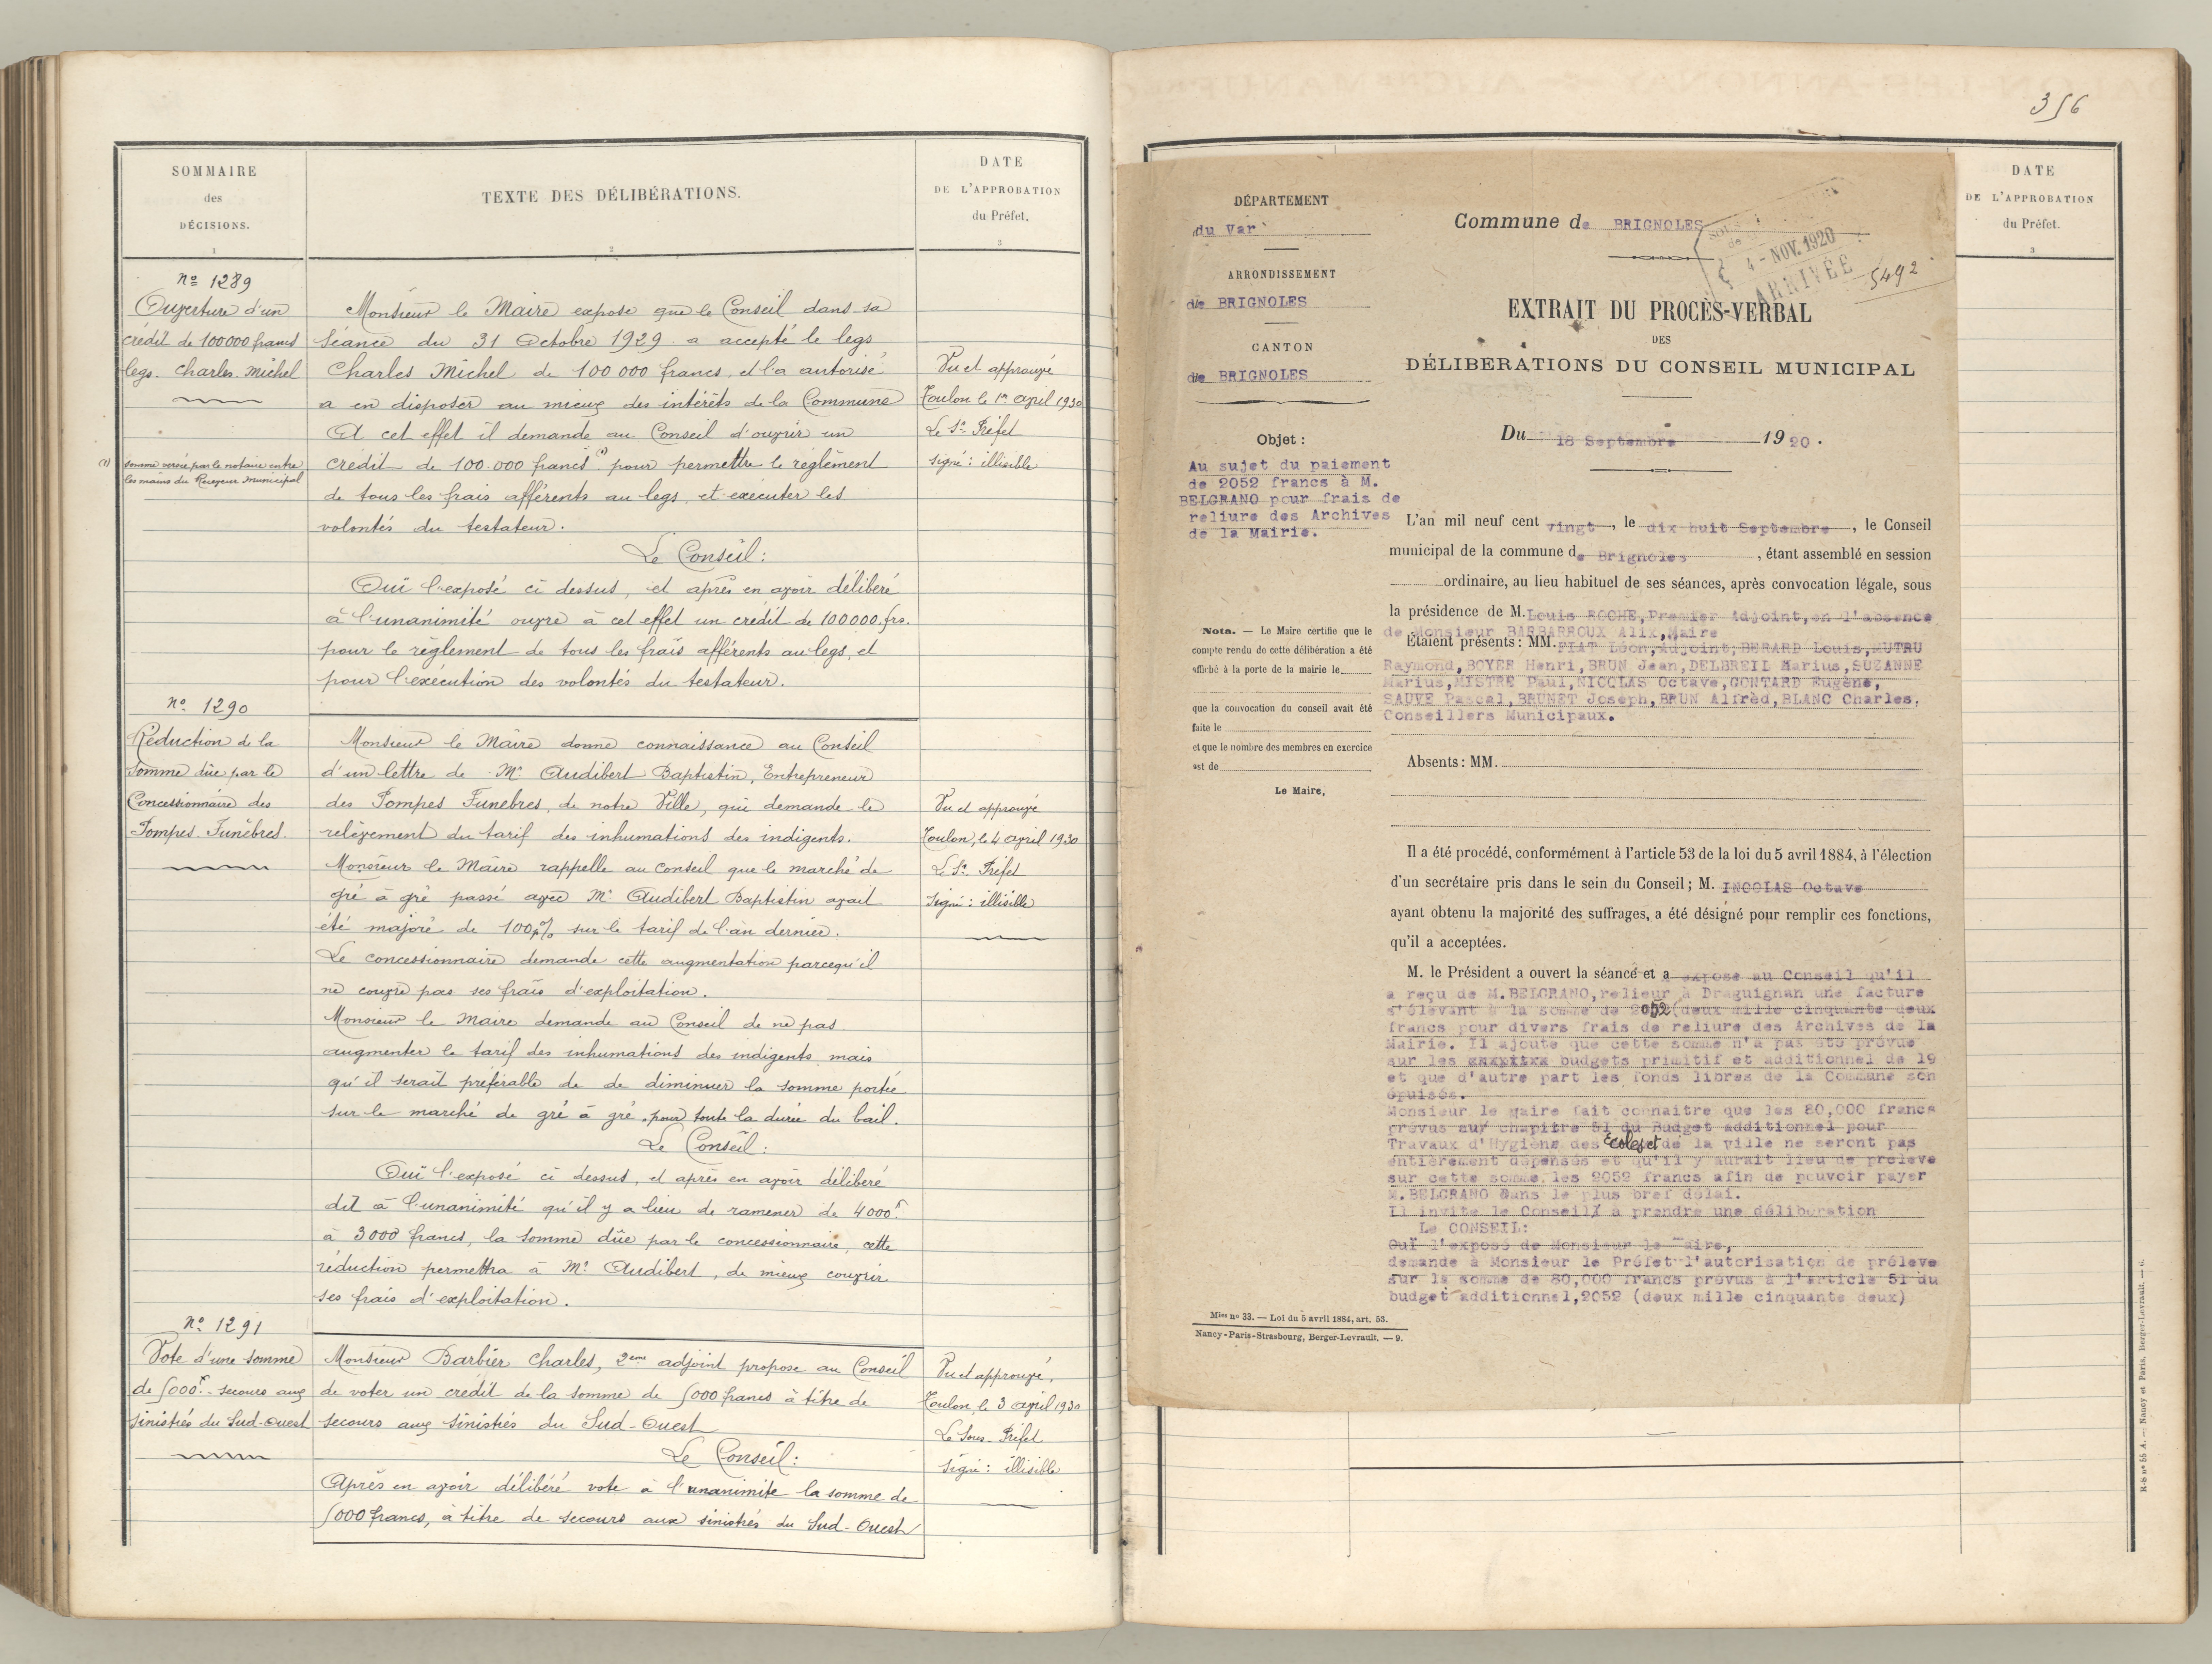 SOMMAIRE
des
DÉCISIONS.
1
TEXTE DES DÉLIBÉRATIONS.
2
DATE
DE L'APPROBATION
du Préfet.
3
Nº 1289
Ouverture d'un
crédit de 100000 francs
legs. Charles. Michel
(1) somme versée par le notaire entre
les mains du Receveur Municipal
Monsieur le Maire expose que le Conseil dans sa
Séance du 31 Octobre 1929 a accepté le legs
Charles Michel de 100 000 francs, et l'a autorisé
a en disposer au mieux des intérêts de la Commune
A cet effet il demande au Conseil d'ouvrir un
crédit de 100.000 francs (1) pour permettre le règlement
de tous les frais afférents au legs, et exécuter les
volontés du testateur.
Le Conseil:
Ouï l'exposé ci dessus, et après en avoir délibéré
à l'unanimité ouvre à cet effet un crédit de 100000.frs.
pour le règlement de tous les frais afférents au legs, et
pour l'exécution des volontés du testateur.
Vu et approuvé
Toulon le 1er avril 1930
Le S. Préfet
signé: illisible
Nº 1290
Réduction de la
Somme dûe par le
Concessionnaire des
Pompes. Funèbres.
Monsieur le Maire donne connaissance au Conseil
d'un lettre de Mr Audibert Baptistin, Entrepreneur
des Pompes Funebres, de notre Ville, qui demande le
relèvement du tarif des inhumations des indigents.
Monsieur le Maire rappelle au Conseil que le marché de
gré à gré passé avec Mr Audibert Baptistin avait
été majoré de 100% sur le tarif de l'an dernier.
Le concessionnaire demande cette augmentation parcequ'il
ne couvre pas ses frais d'exploitation.
Monsieur le Maire demande au Conseil de ne pas
augmenter le tarif des inhumations des indigents mais
qu'il serait préférable de de diminuer la somme portée
sur le marché de gré à gré, pour toute la durée du bail.
Le Conseil:
Ouï l'exposé ci dessus, et après en avoir délibéré
dit à l'unanimité qu'il y a lieu de ramener de 4000f
à 3000 francs, la somme dûe par le concessionnaire, cette
réduction permettra à Mr Audibert, de mieux couvrir
ses frais d'exploitation.
Vu et approuvé
Toulon, le 4 avril 1930
Le S. Préfet
Signé: illisible
Nº 1291
Vote d'une somme
de 5000f. secours aux
sinistrés du Sud-Ouest
Monsieur Barbier Charles, 2eme adjoint propose au Conseil
de voter un crédit de la somme de 5000 francs à titre de
secours aux sinistrés du Sud-Ouest
Le Conseil:
Après en avoir délibéré vote à l'unanimite la somme de
5000 francs, à titre de secours aux sinistrés du Sud-Ouest
Vu et approuvé,
Toulon, le 3 avril 1930
Le Sous-Préfet
Signé: illisible
356
DATE
DE L'APPROBATION
du Préfet.
3
DÉPARTEMENT
du Var
ARRONDISSEMENT
de BRIGNOLES
CANTON
de BRIGNOLES
Objet:
Au sujet du paiement
de 2052 francs à M.
BELGRANO pour frais de
reliure des Archives
de la Mairie.
Nota. — Le Maire certifie que le
compte rendu de cette délibération a été
affiché à la porte de la mairie le
que la convocation du conseil avait été
faite le
et que le nombre des membres en exercice
est de
Le Maire,
Mles nº 33. — Loi du 5 avril 1884, art. 53.
Nancy-Paris-Strasbourg, Berger-Levrault. — 9.
Commune de BRIGNOLES
4 - NOV. 1920
ARRIVÉE
5492
EXTRAIT DU PROCÈS-VERBAL
DES
DÉLIBERATIONS DU CONSEIL MUNICIPAL
Du 18 Septembre 1920.
L'an mil neuf cent vingt, le dix huit Septembre, le Conseil
municipal de la commune de Brignoles, étant assemblé en session
ordinaire, au lieu habituel de ses séances, après convocation légale, sous
la présidence de M. Louis ROCHE, Premier Adjoint, en l'absence
de Monsieur BARBARROUX Alix, Maire
Étaient présents: MM. PIAT Léon, Adjoint; BERARD Louis, MUTRU
Raymond, BOYER Henri, BRUN Jean, DELBREIL Marius, SUZANNE
Marius, MISTRE Paul, NICOLAS Octave, GONTARD Eugène,
SAUVE Pascal, BRUNET Joseph, BRUN Alfrèd, BLANC Charles,
Conseillers Municipaux.
Absents: MM.
Il a été procédé, conformément à l'article 53 de la loi du 5 avril 1884, à l'élection
d'un secrétaire pris dans le sein du Conseil; M. INCOLAS Octave
ayant obtenu la majorité des suffrages, a été désigné pour remplir ces fonctions,
qu'il a acceptées.
M. le Président a ouvert la séance et a exposé au Conseil qu'il
a reçu de M. BELGRANO, relieur à Draguignan une facture
s'élevant à la somme de 2052 (deux mille cinquante deux
francs pour divers frais de reliure des Archives de la
Mairie. Il ajoute que cette somme n'a pas été prévue
sur les budgets primitif et additionnel de 19
et que d'autre part les fonds libres de la Commune son
épuisés.
Monsieur le maire fait connaitre que les 80,000 francs
prévus au chapitre 51 du Budget additionnel pour
Travaux d'Hygiène des Ecoles et de la ville ne seront pas
entièrement dépensés et qu'il y aurait lieu de préleve
sur cette somme, les 2052 francs afin de pouvoir payer
M. BELGRANO dans le plus bref délai.
Il invite le Conseil à prendre une délibération
Le CONSEIL:
Ouï l'exposé de Monsieur le Maire,
demande à Monsieur le Préfet l'autorisation de préleve
sur la somme de 80,000 francs prévus à l'article 51 du
budget additionnel, 2052 (deux mille cinquante deux)
R-S nº 55 A. — Nancy et Paris, Berger-Levrault. — 6.